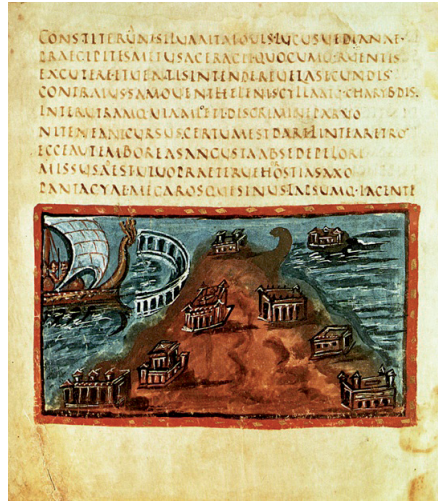 CONSTITERUNTSILVAALTAIOVIS·LUCUSUEDIANAE·
PRAECIPITESMETUSACERAGITQUOCUMQ·RUDENTIS
EXCUTERE·ETUENTISINTENDEREUELASECUNDIS
CONTRAIUSSAMONENTHELENISCYLLAMQ·CHARYBDIS·
INTERUTRAMQ·UIAMLETIDISCRIMINEPARVO
NITENEANTCURSUS·CERTUMESTDARELINTEARETRO
ECCEAUTEMBOREASANGUSTAABSEDEPELORI
MISSUSADESTUIUOPRAETERUEHOROSTIASAXO
PANTAGIAEMEGAROSQUESINUSTAPSUMQ·IACENTE